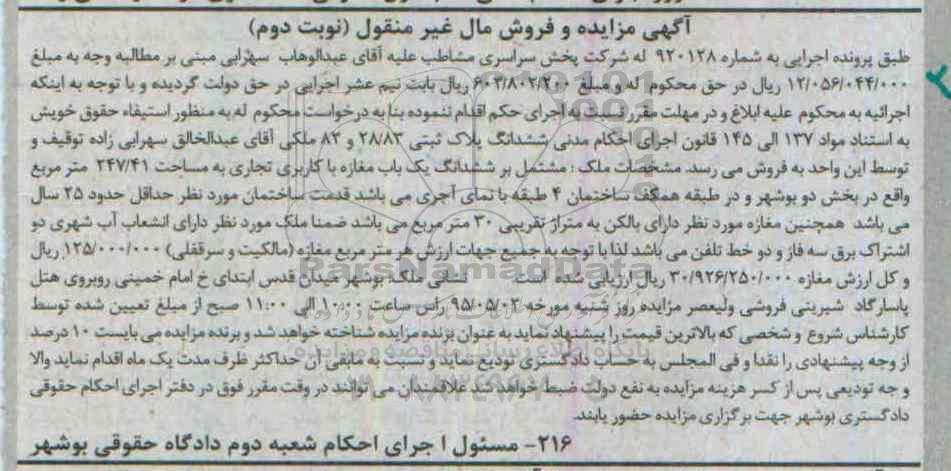 آگهی مزایده و فروش مال غیر منقول (نوبت دوم)
طبق پرونده اجرایی به شماره ۹۲۰۱۲۸ له شرکت پخش سراسری مشاطب علیه آقای عبدالوهاب سهرابی مبنی بر مطالبه وجه به مبلغ
۱۲/۰۵۶/۰۴۴/۰۰۰ ریال در حق محکوم له و مبلغ ۶۰۲/۸۰۲/۲۰۰ ریال بابت نیم عشر اجرایی در حق دولت گردیده و با توجه به اینکه
اجرائیه به محکوم علیه ابلاغ و در مهلت مقرر نسبت به اجرای حکم اقدام ننموده بنا به درخواست محکوم له به منظور استیفاء حقوق خویش
به استناد مواد ۱۳۷ الی ۱۴۵ قانون اجرای احکام مدنی ششدانگ پلاک ثبتی ۲۸/۸۳ و ۸۲ ملکی آقای عبدالخالق سهرابی زاده توقیف و
توسط این واحد به فروش می رسد. مشخصات ملک : مشتمل بر ششدانگ یک باب مغازه با کاربری تجاری به مساحت ۲۴۷/۴۱ متر مربع
واقع در بخش دو بوشهر و در طبقه همکف ساختمان ۴ طبقه با نمای آجری می باشد قدمت ساختمان مورد نظر حداقل حدود ۲۵ سال
می باشد همچنین مغازه مورد نظر دارای بالکن به متراژ تقریبی ۳۰ متر مربع می باشد ضمنا ملک مورد نظر دارای انشعاب آب شهری دو
اشتراک برق سه فاز و دو خط تلفن می باشد لذا با توجه به جمیع جهات ارزش هر متر مربع مغازه (مالکیت و سرقفلی) ۱۲۵/۰۰۰/۰۰۰ ریال
و کل ارزش مغازه ۳۰/۹۲۶/۲۵۰/۰۰۰ ریال ارزیابی شده است. نشانی ملک: بوشهر میدان قدس ابتدای خ امام خمینی روبروی هتل
پاسارگاد شیرینی فروشی ولیعصر مزایده روز شنبه مورخه ۹۵/۰۵/۰۲ راس ساعت ۱۰:۰۰ الی ۱۱:۰۰ صبح از مبلغ تعیین شده توسط
کارشناس شروع و شخصی که بالاترین قیمت را پیشنهاد نماید به عنوان برنده مزایده شناخته خواهد شد و برنده مزایده می بایست ۱۰ درصد
از وجه پیشنهادی را نقدا و فی المجلس به حساب دادگستری تودیع نماید و نسبت به مابقی آن حداکثر ظرف مدت یک ماه اقدام نماید والا
و جه تودیعی پس از کسر هزینه مزایده به نفع دولت ضبط خواهد شد علاقمندان می توانند در وقت مقرر فوق در دفتر اجرای احکام حقوقی
دادگستری بوشهر جهت برگزاری مزایده حضور یابند.
۲۱۶- مسئول ا جرای احکام شعبه دوم دادگاه حقوقی بوشهر
ParsNamadData